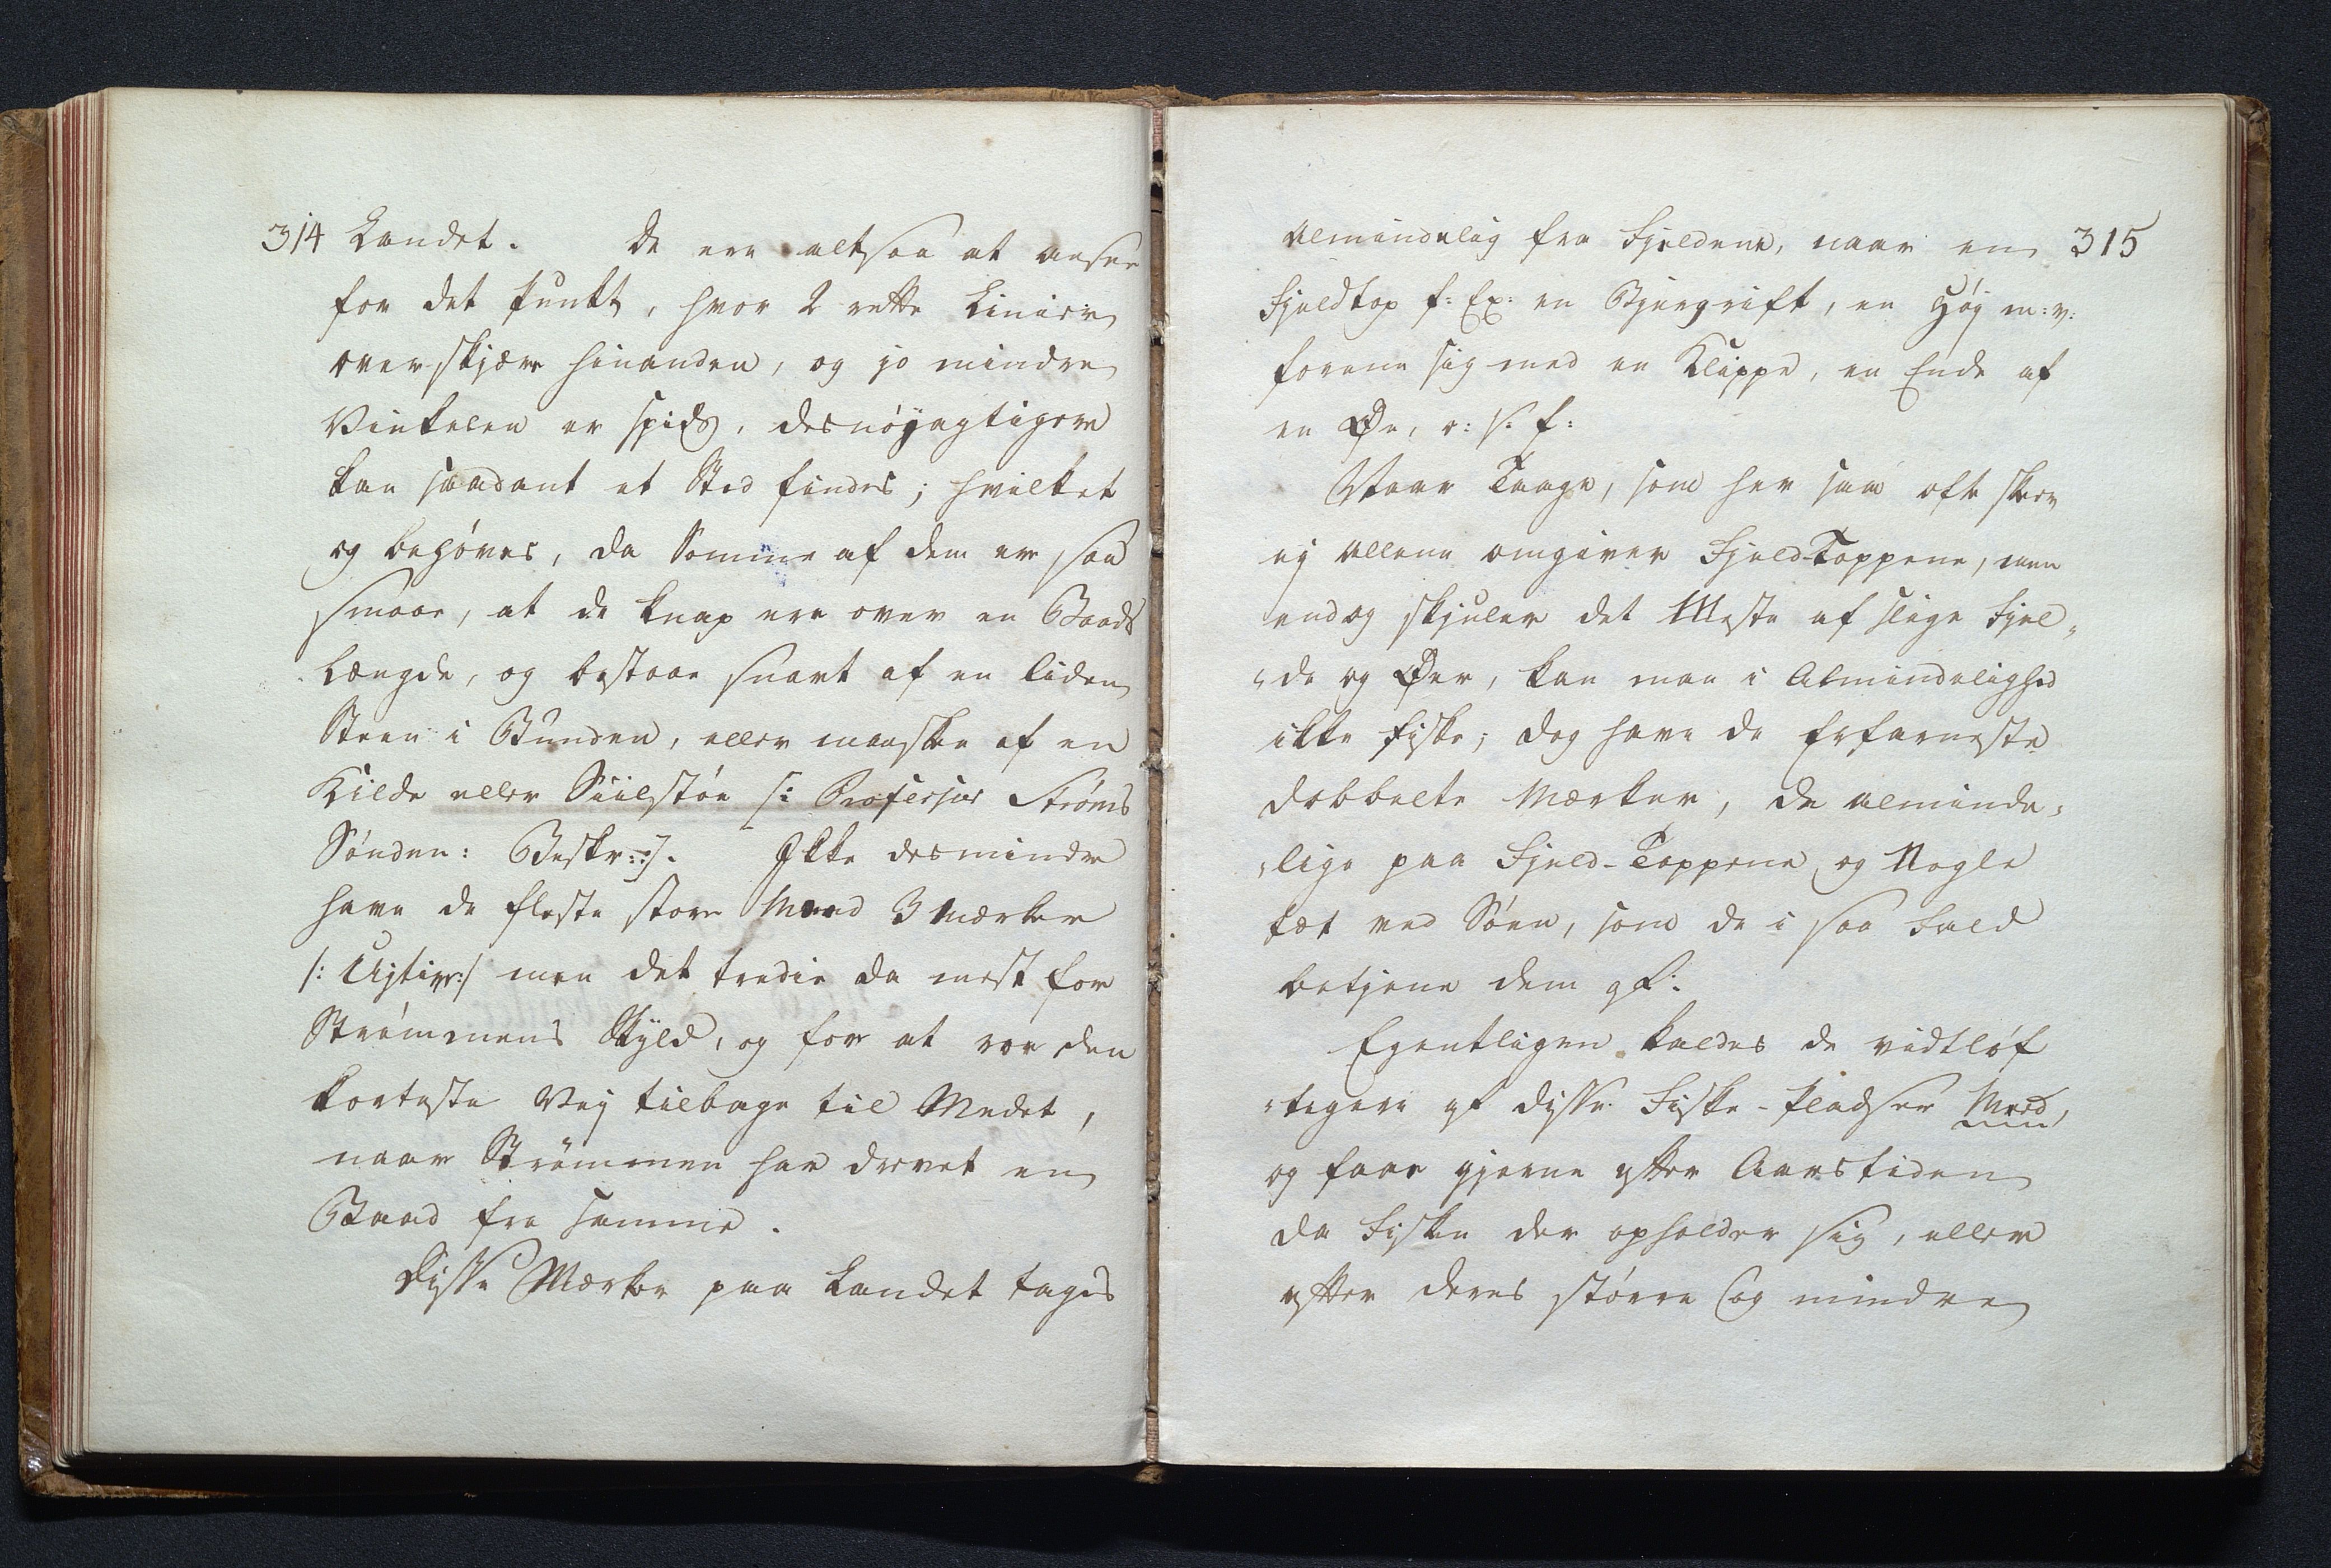 314 Landet. De ere altsaa at ansee
for det Punkt, hvor 2 rette Linier
overskjære hinanden, og jo mindre
Vinkelen er spids, desnøyagtigere
kan saadant et Sted findes; hvilket
og behøves, da Somme af dem ere saa
smaae, at de knap ere over en Baads
Længde, og bestaae snart af en liden
Steen i Bunden, eller maaskee af en
Kilde eller Siilstøe /: Professor Strøms
Søndm: Beskr::/. Ikke desmindre
have de fleste store Meed 3 Mærker
/: Ujtier:/ men det tredie da mest for
Strømmens Skyld, og for at roe den
korteste Vej tilbage til Medet,
naar Strømmen har drevet en
Baad fra samme.
Disse Mærker paa Landet tages
almindelig fra Fjeldene, naar en 315
Fjeldtop f: Ex: en Bjergrift, en Høj m: v:
forene sig med en Klippe, en Ende af
en Øe, o: s: f:
Naar Taage, som her saa ofte skeer
ej allene omgiver Fjeld-Toppene, men
endog skjuler det Meste af slige Fjel„
„de og Øer, kan man i Almindelighed
ikke fiske; dog have de Erfarneste
dobbelte Mærker, de alminde„
„lige paa Fjeld-Toppene, og Nogle
tæt ved Søen, som de i saa Fald
betjene dem af:
Egentligen kaldes de vidtløf
„tigere af disse Fiske-Pladser Meed,
og faae gjerne efter Aarstiden
da Fisken der opholder sig, eller
efter deres større og mindre